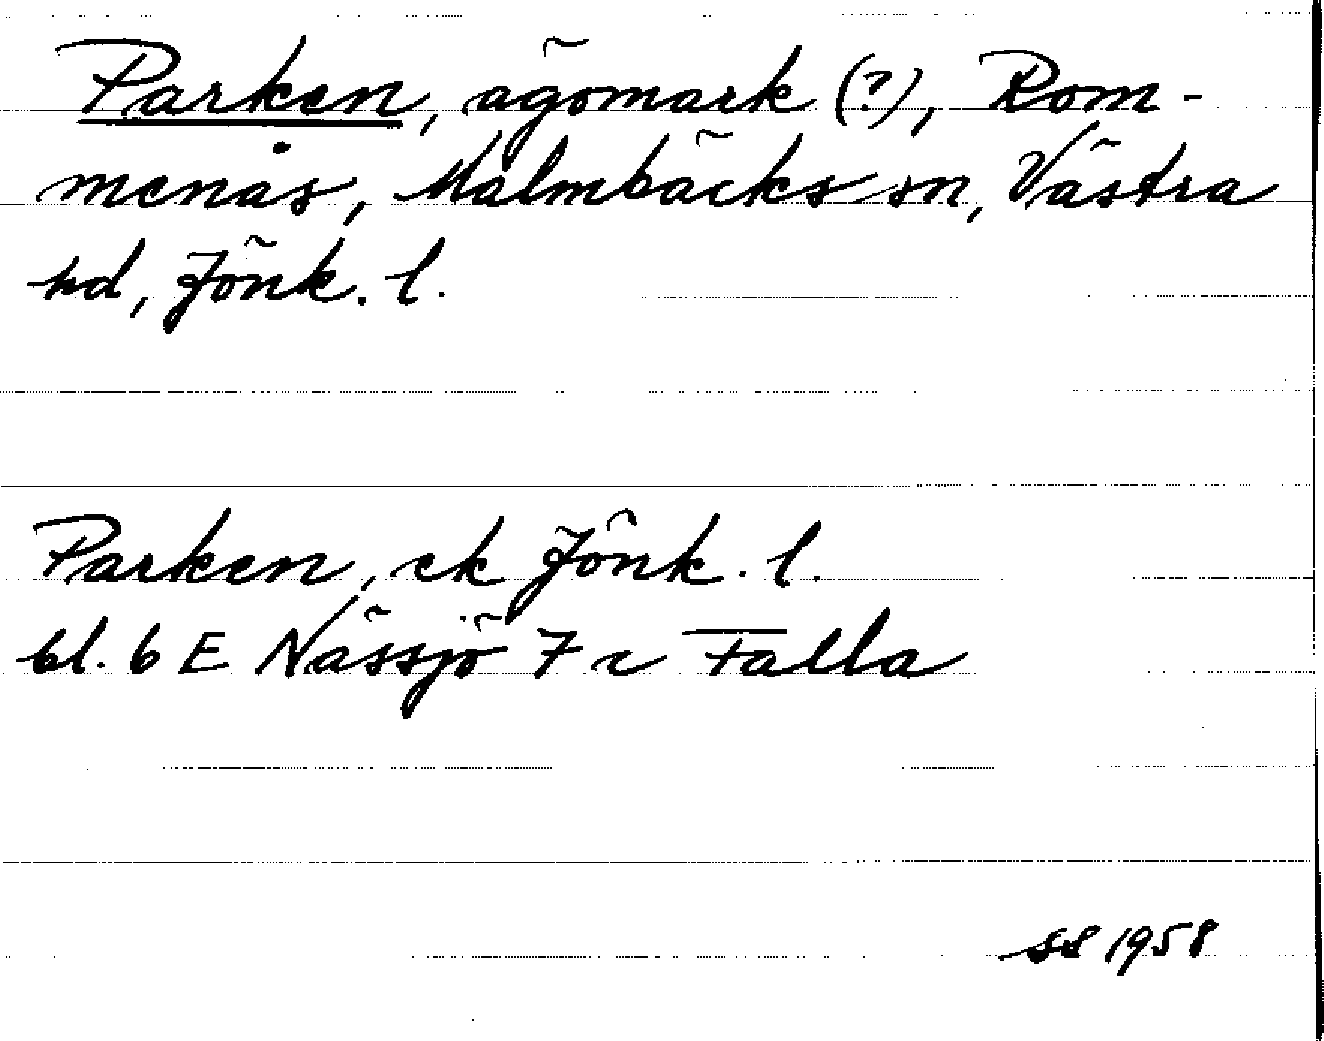 Parken, ägomark (?), Rom-
menås, Malmbäcks sn, Västra
hd, Jönk. l.
Parken, ek Jönk. l.
bl. 6 E Nässjö 7 c Falla
SS 1958